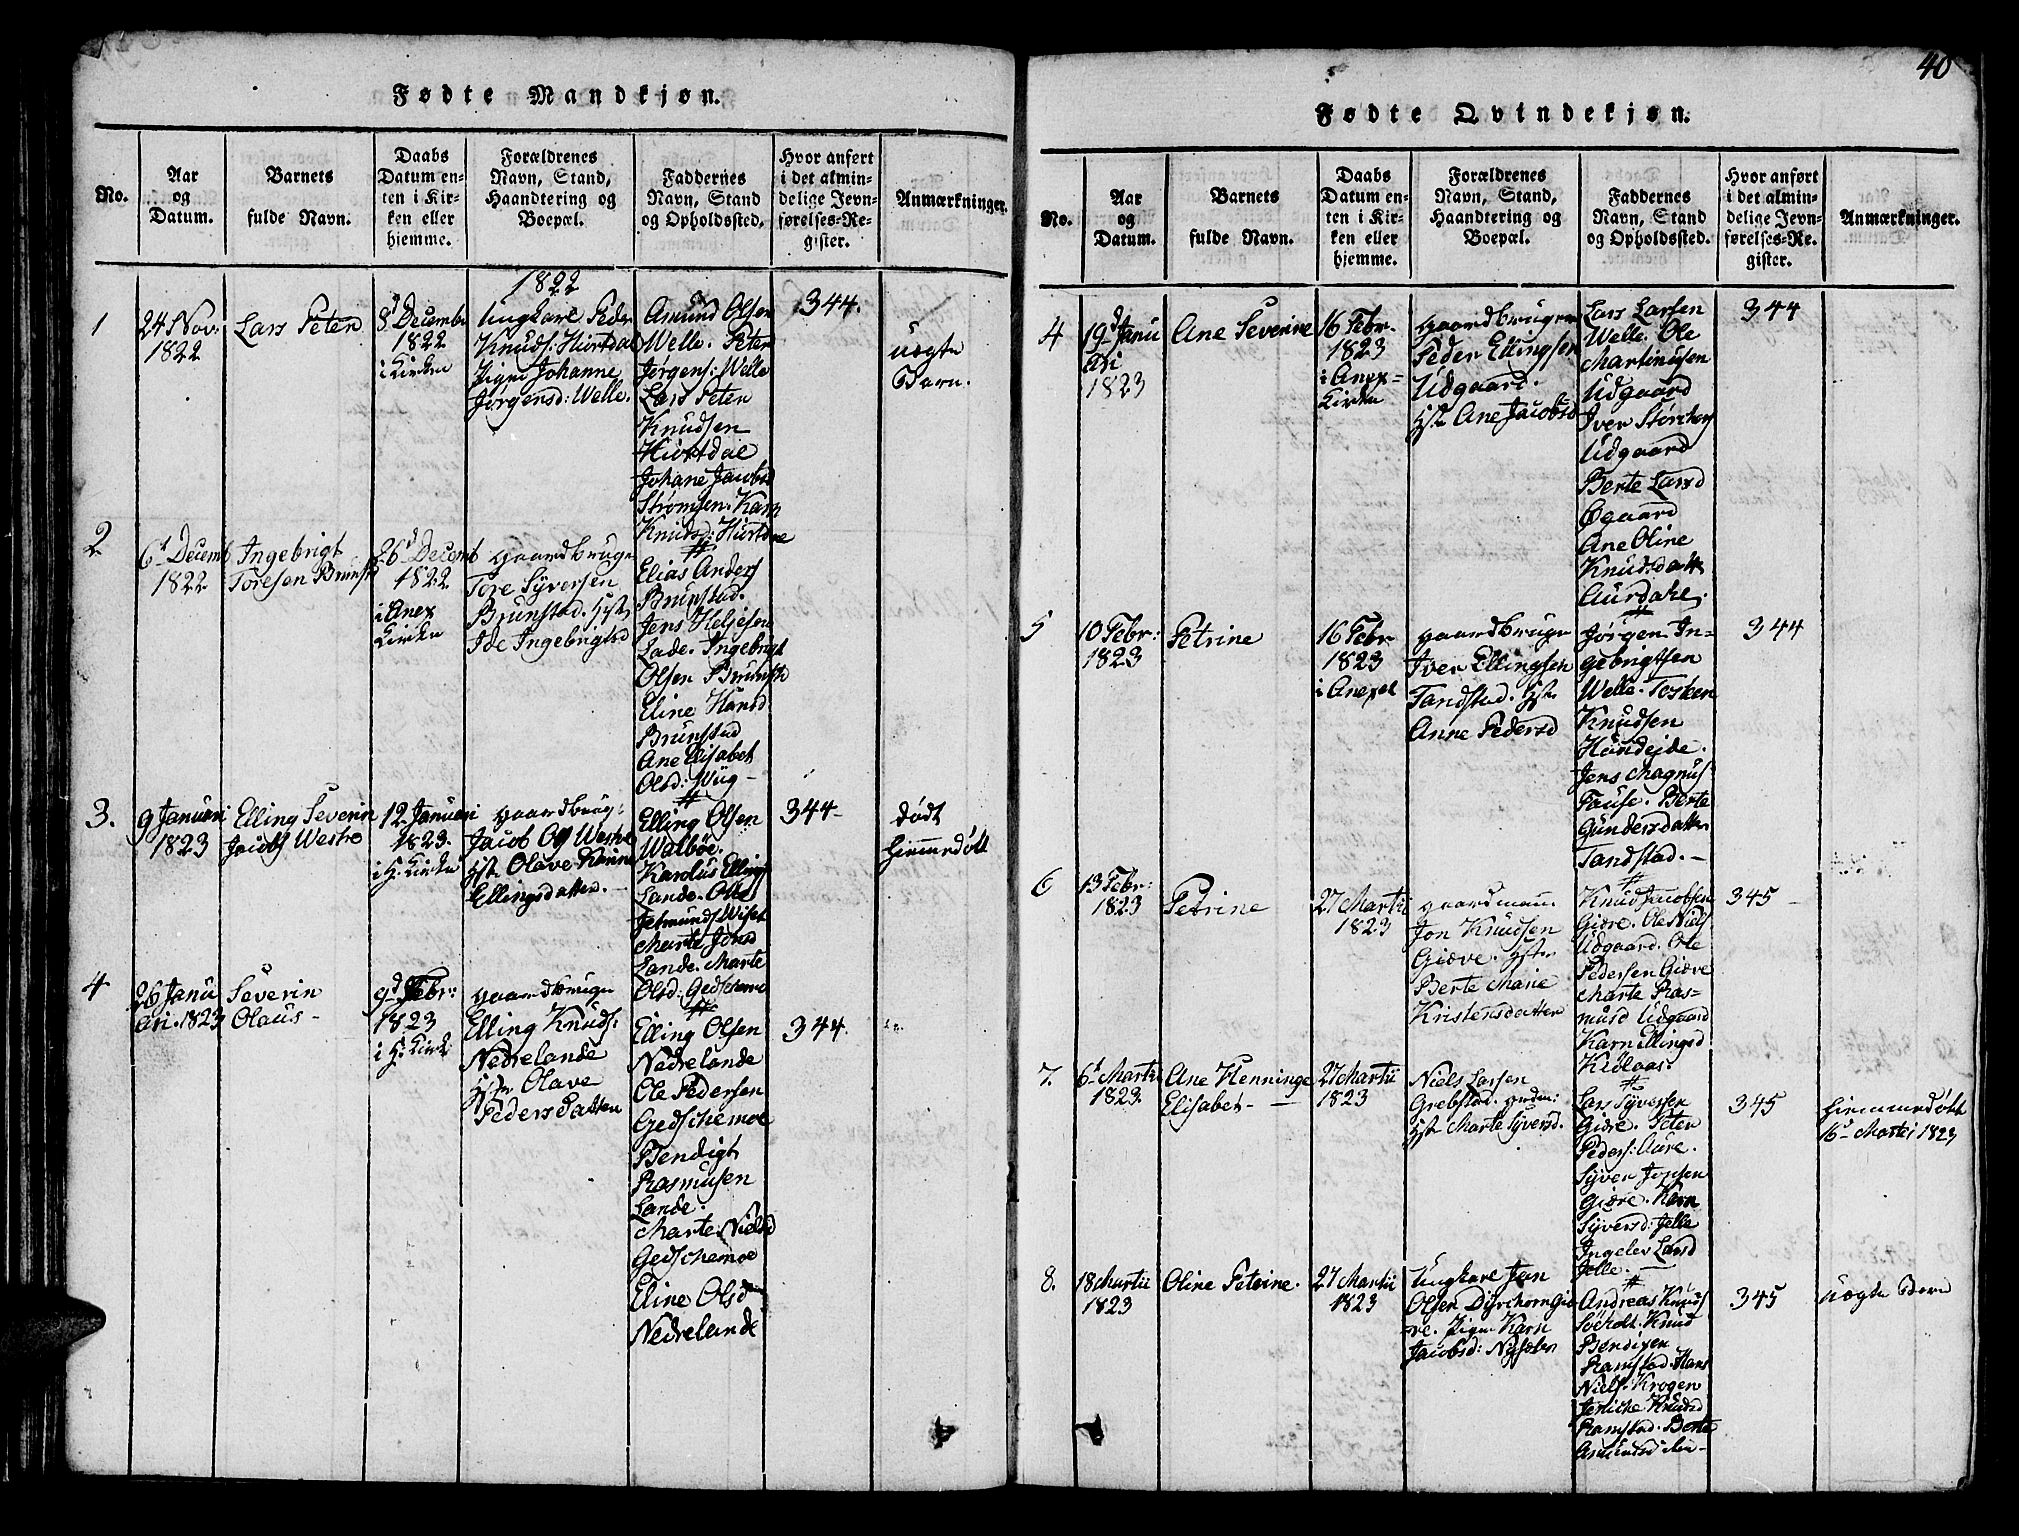 40
Fødte Mandkjøn.
No.
Aar
og
Datum.
Barnets
fulde Navn.
Daabs
Datum en-
ten i Kir-
ken eller
hjemme.
Forældrenes
Navn, Stand,
Haandtering og
Boepæl.
Faddernes
Navn, Stand
og Opholdssted.
Hvor anført
i det almin-
delige Jevn-
førelses-Re-
gister.
Anmærkninger.
1822
1
24 Nov:
1822
Lars Peter
8d Decembr
1822
i Kirken
Ungkarl Peder
Knuds: Hiortdal
Pige Johanne
Jørgensd: Welle.
Amund Olsen
Welle. Peter
Jørgens: Welle
Lars Peter
Knudsen
Hiortdal
Johane Jacobsd
Strømsen. Karn
Knuds: Hiortdal
344.
uægte
Barn.
2
6d Decemb
1822
Ingebrigt
Toresen Brunst
26d Decemb
1822
i Anex
Kirken
Gaardbruger
Tore Syversen
Brunstad. Hstr
Ide Ingebrigtsd
Elias Anders
Brunstad.
Jens Heljesen
Lade. Ingebrigt
Olsen Brunstd
Eline Hansd
Brunstad
Ane Elisabet
Olsd: Wiig -
3.
9 Januari
1823
Elling Severin
Jacobs Westre
12 Januari
1823.
i H. Kirken
Gaardbrug:
Jacob Ols Westre
Hstr Olave Karine
Ellingsdatter. -
Elling Olsen
Walbøe.
Karolus Ellings
Lande. Ole
Jetmunds Wiset
Marte Jonsd
Lande. Marte
Olsd: Gedschemoe
344-
dødt
hiemmedøbt
4
26 Janu
ari. 1823
Severin
Olaus -
9d Febr:
1823
i H. Kirk
Gaardbruger
Elling Knuds:
Nedrelande
Hstr Olave
Pedersdatter
Elling Olsen
Nedrelande
Ole Pedersen
Gedschemoe
Bendigt
Rasmusen
Lande.
Marte Nielsd
Gedschemoe
Eline Olsd
Nedrelande
344.
Fødte Qvindekjøn.
No.
Aar
og
Datum.
Barnets
fulde Navn.
Daabs
Datum en-
ten i Kir-
ken eller
hjemme.
Forældrenes
Navn, Stand,
Haandtering og
Boepæl.
Faddernes
Navn, Stand
og Opholdssted.
Hvor anført
i det almin-
delige Jevn-
førelses-Re-
gister.
Anmærkninger.
4
19d Janu
ari
1823
Ane Severine
16 Febr.
1823
i Anex-
Kirken
Gaardbruger
Peder Ellingsen
Udgaard.
Hstr Ane Jacobsd
Lars Larsen
Welle. Ole
Martinusen
Udgaard
Iver Storchers
Udgaard
Berte Larsd
Øgaard
Ane Oline
Knudsdatt
Aurdahl.
344
5
10 Febr:
1823
Petrine
16 Febr
1823
i Anexet
Gaardbruger
Iver Ellingsen
Tandstad. Hstr
Anne Pedersd
Jørgen In-
gebrigtsen
Welle. Tosken
Knudsen
Hundejde.
Jens Magnus
Fause. Berte
Gundersdatter
Tandstad. -
344
6
13 Febr:
1823
Petrine
27 Martii
1823
Gaardmand
Jon Knudsen
Giære. Hstr
Berte Marie
Kristensdatter
Knud Jacobsen
Giære. Ole Niels
Udgaard. Ole
Pedersen Giære
Marte Ras-
musd Udgaard
Karn Ellingsd
Kidlaas.
345 -
7.
6d Martii
1823.
Ane Henninge
Elisabet -
27 Martii
1823
Niels Larsen
Grebstad. Grdm:
Hstr Marte Syversd.
Lars Syversen
Giære. Peter
Peders: Aure.
Syver Jonsen
Giære. Karn
Syversd: Jelle
Ingeles Larsd
Jelle. -
345
Hiemmedøbt
16d Martii 1823
8.
18 Martii
1823
Oline Petrine.
27 Martii
1823
Ungkarl Jon
Olsen Dyrchorn Giæ
re. Pige Karn
Jacobsd: Nysæter
Andreas Knuds
Søeholt. Knud
Bendixen
Ramstad. Hans
Niels: Krogen
Jeniche Knudsd
Ramstad. Berte
345
uægte Barn